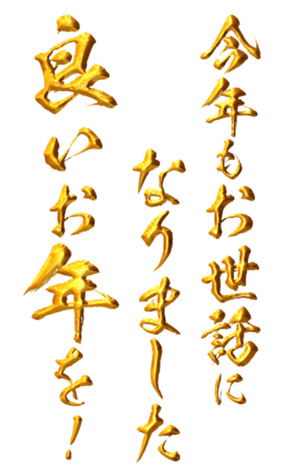 今年もお世話に
なりました
良いお年を！